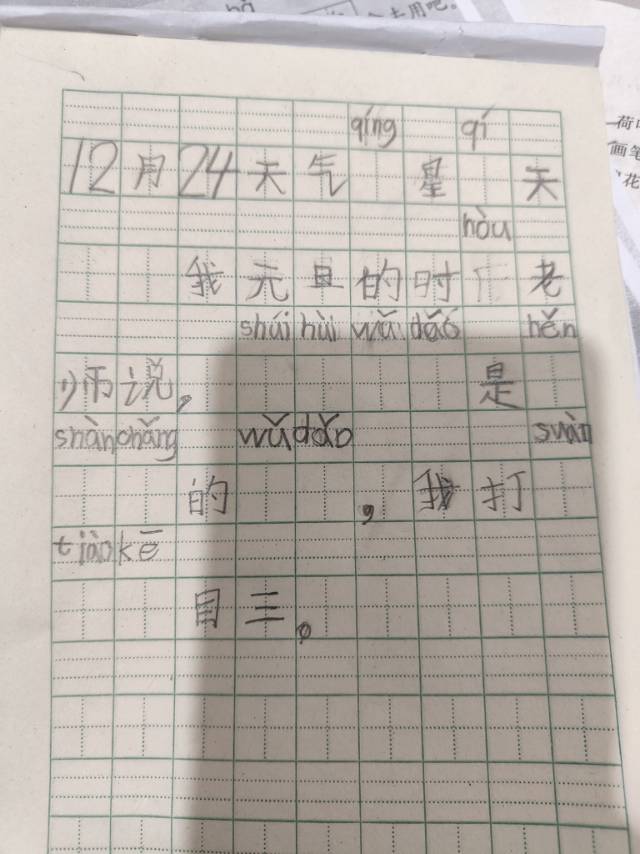 去用吧。
荷
画笔
花
qíng qí
12月24天气 星 天
hòu
我元旦的时 老
shúi hùi wǔ dǎo hěn
师说， 是
shàn chǎng wǔ dǎo suàn
的 ，我打
tiào kē
目三。